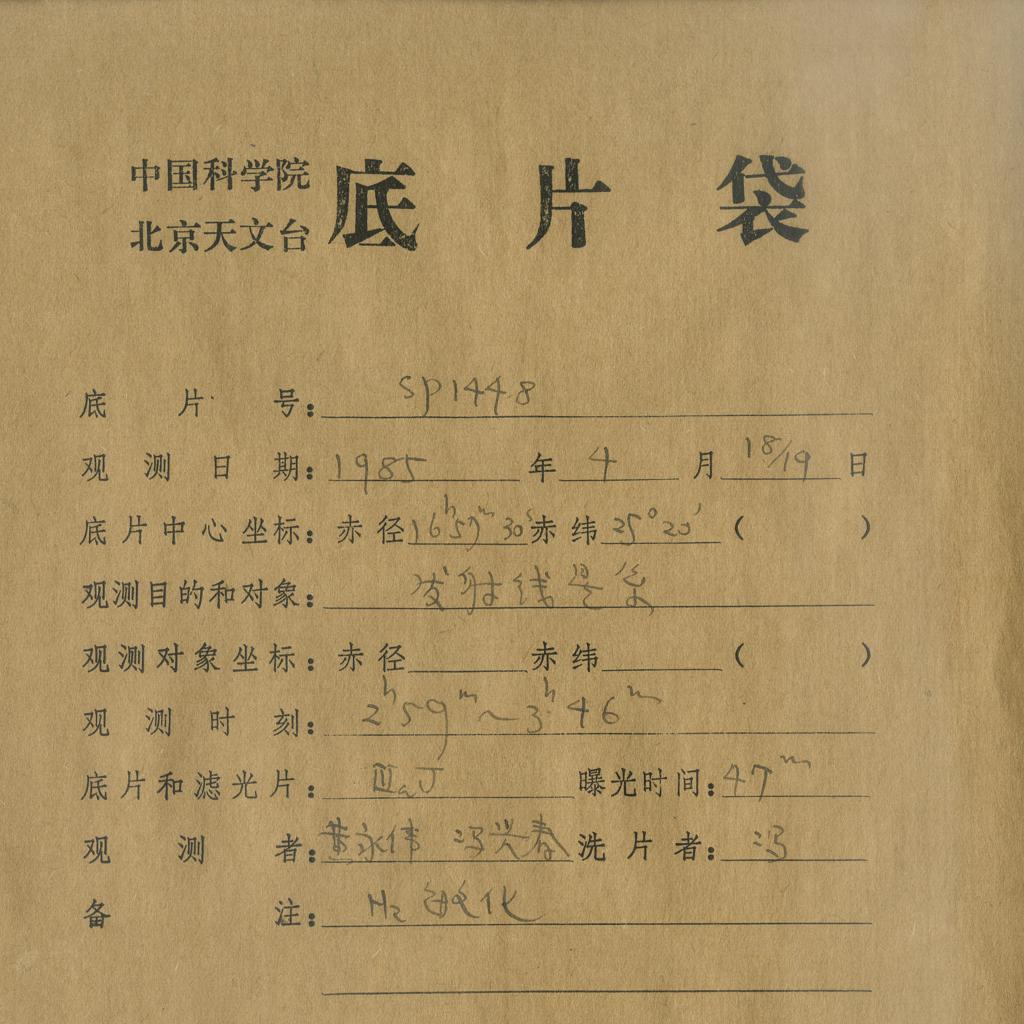 中国科学院
北京天文台
底片袋
底片号：SP1448
观测日期：1985年4月18/19日
底片中心坐标：赤径16ʰ57ᵐ30ˢ赤纬25°20′（ ）
观测目的和对象：发射线星系
观测对象坐标：赤径 赤纬 （ ）
观测时刻：2ʰ59ᵐ～3ʰ46ᵐ
底片和滤光片：ⅢaJ 曝光时间：47ᵐ
观测者：黄永伟 冯兴春 洗片者：冯
备注：H₂敏化